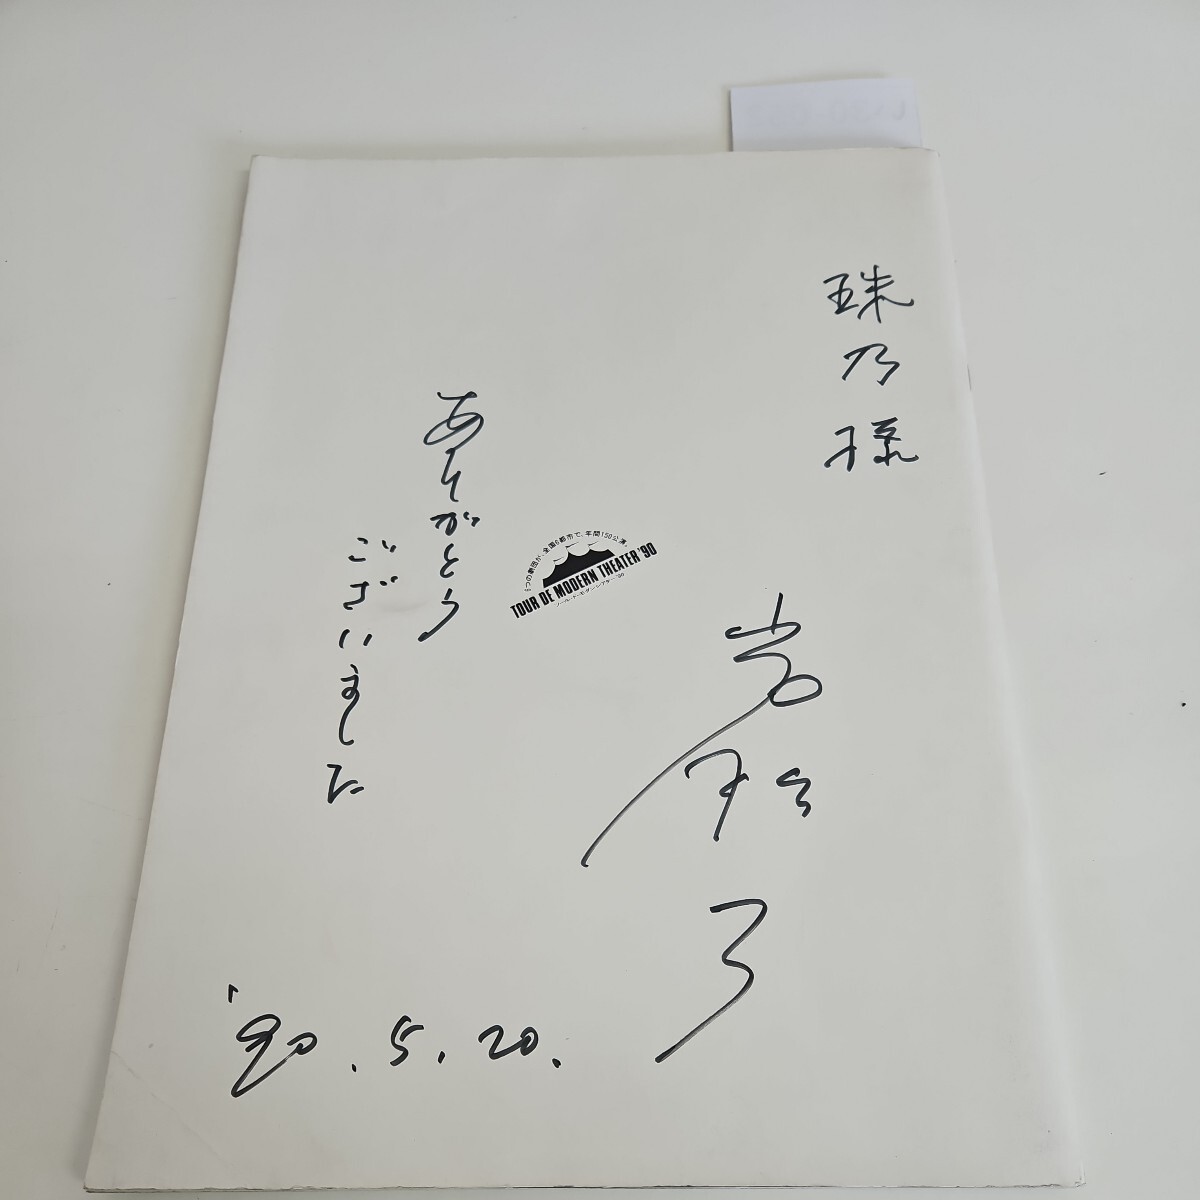 珠乃様
岩松了
ありがとう
ございました
5つの劇団が、全国6都市で、年間150公演。
TOUR DE MODERN THEATER '90
ツール・ド・モダン・シアター '90
'90.5.20.